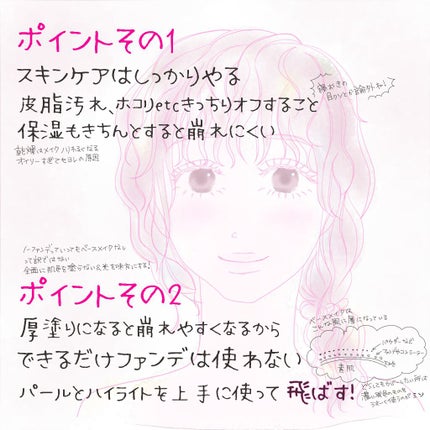 ポイントその1
スキンケアはしっかりやる
皮脂汚れ、ホコリetcきっちりオフすること
保湿もきちんとすると崩れにくい
乾燥はメイクノリわるくなる
オイリーすぎてもヨレの原因
ノーファンデっていってもベースメイクなし
って訳ではない
全面に肌色を塗らない&光を味方にする!
ポイントその2
厚塗りになると崩れやすくなるから
できるだけファンデは使わない
パールとハイライトを上手に使って飛ばす!
ベースメイクは
こんな風に層になっている
素肌